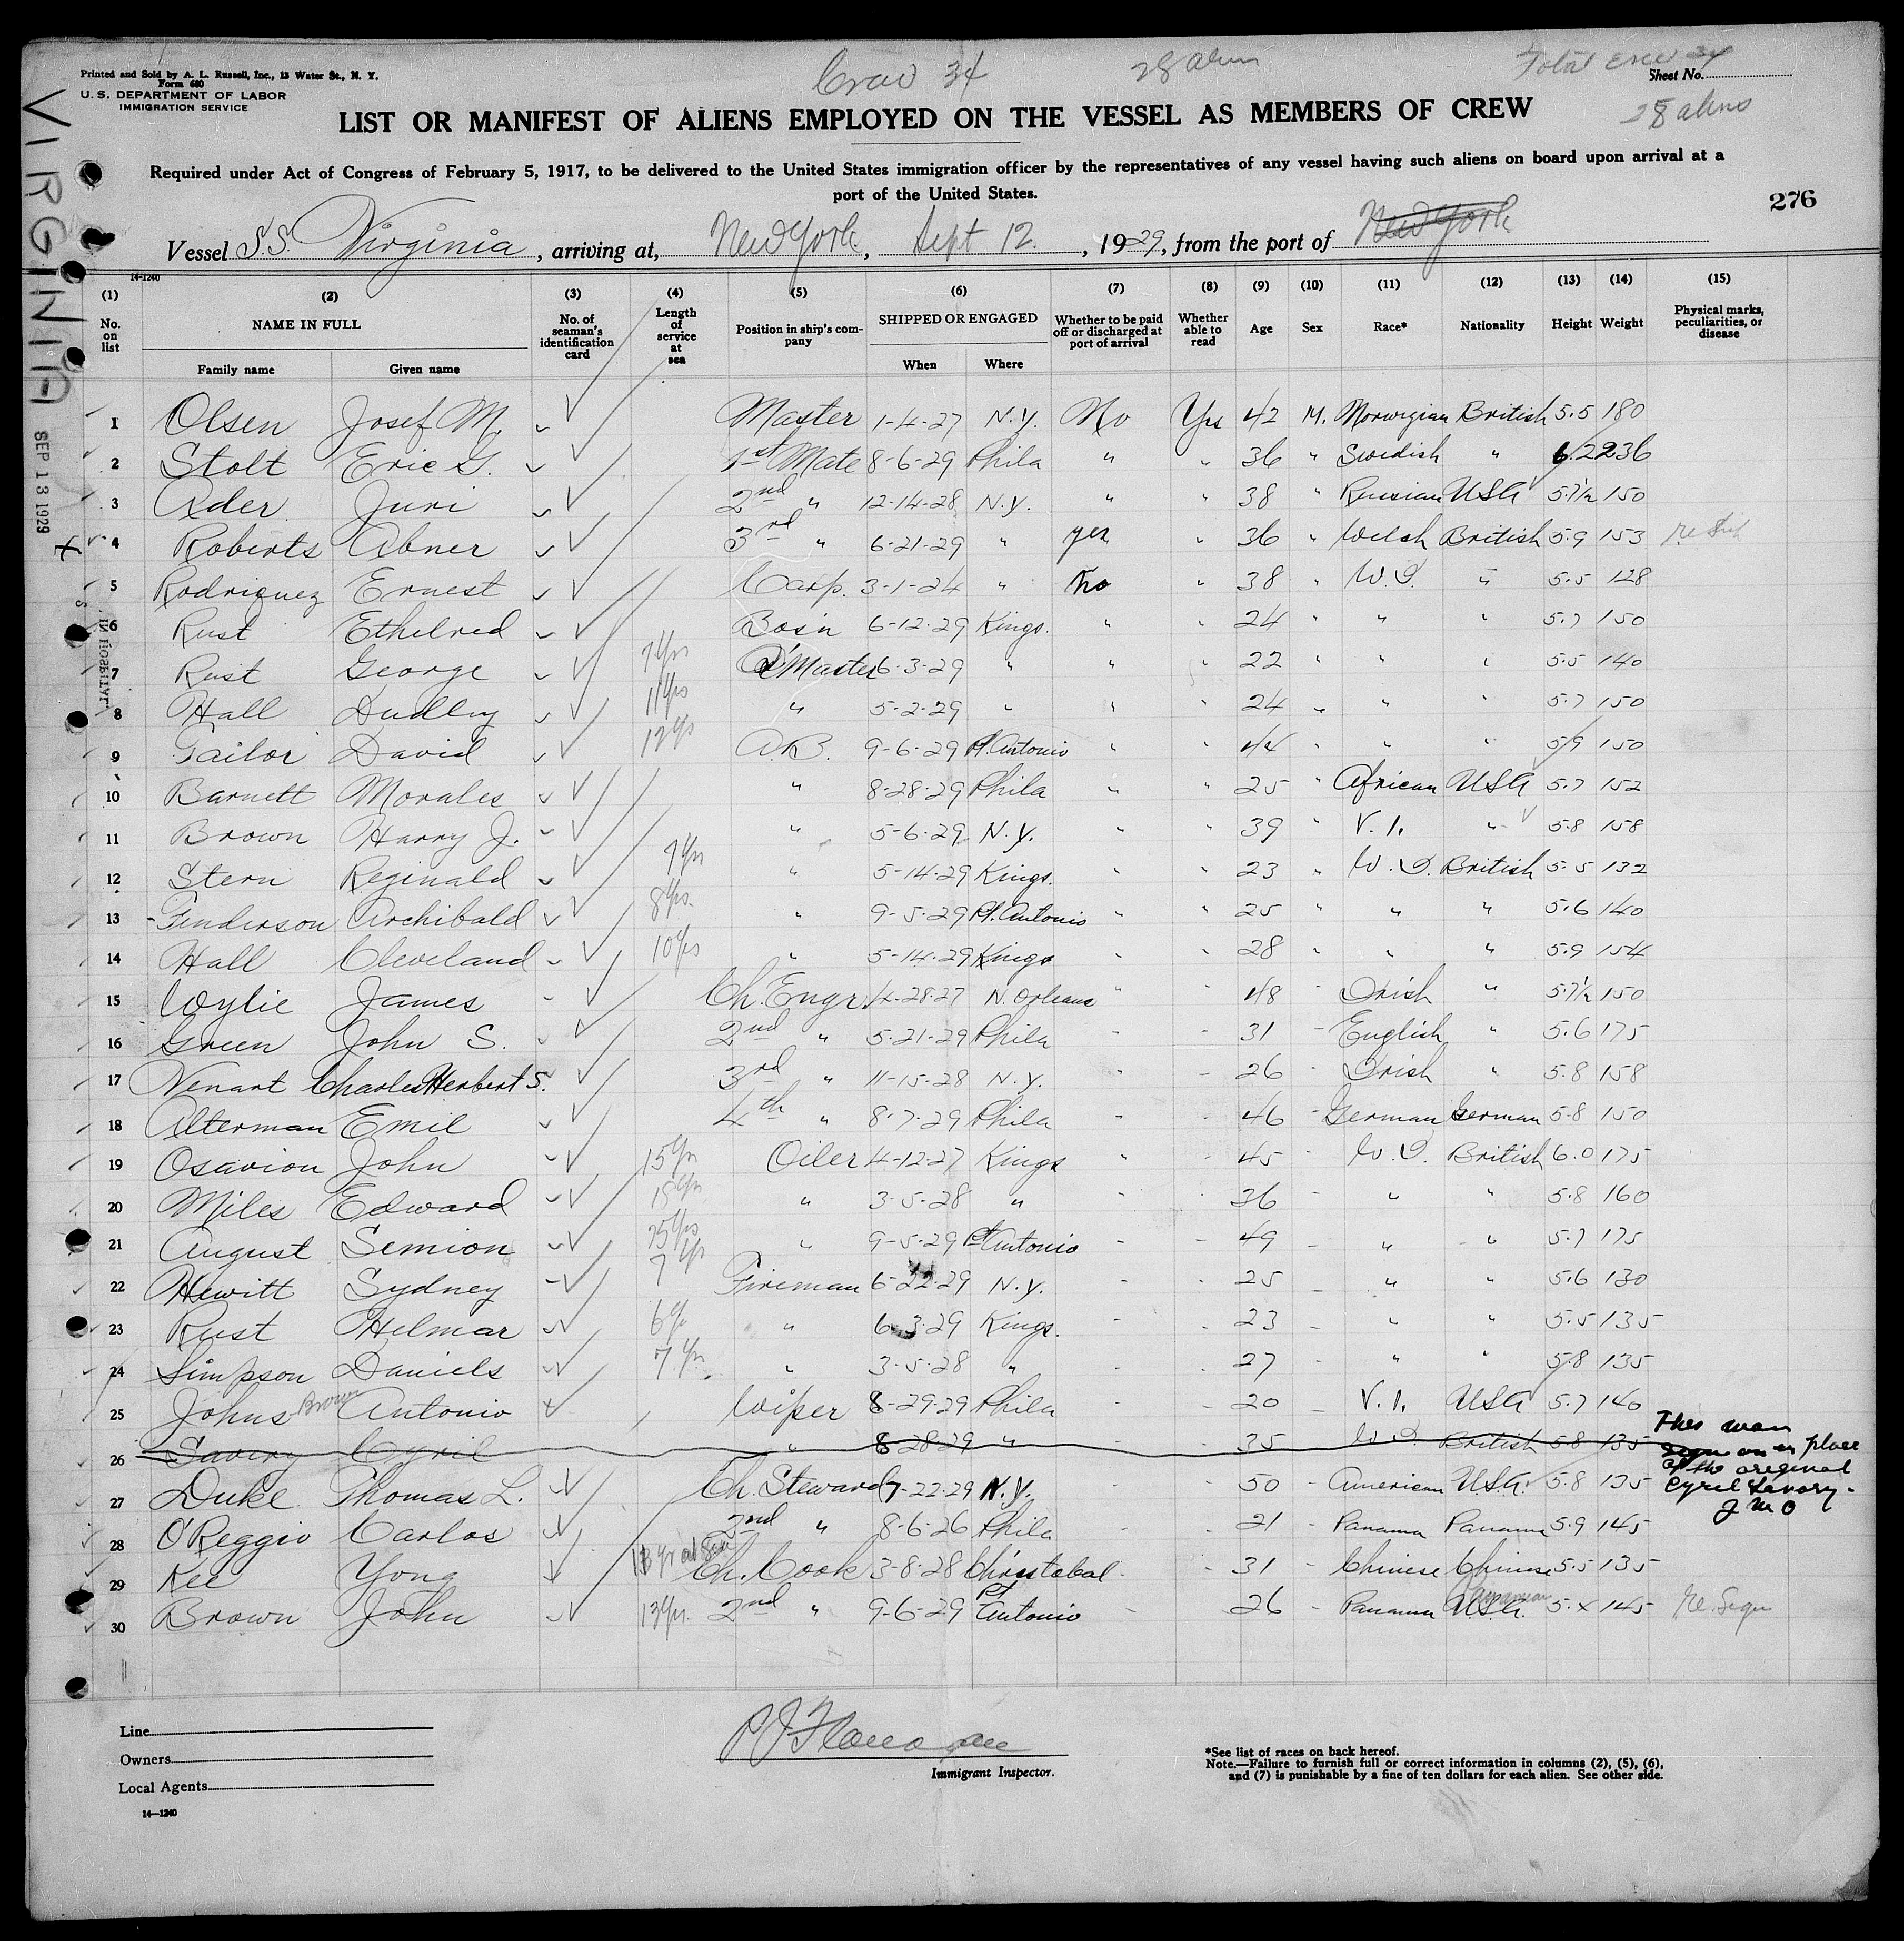 Printed and Sold by A. L. Russell, Inc., 13 Water St., N. Y.
Form 680
U. S. DEPARTMENT OF LABOR
IMMIGRATION SERVICE
Crew 34 28 aliens Total crew 34
Sheet No.
28 aliens
LIST OR MANIFEST OF ALIENS EMPLOYED ON THE VESSEL AS MEMBERS OF CREW
Required under Act of Congress of February 5, 1917, to be delivered to the United States immigration officer by the representatives of any vessel having such aliens on board upon arrival at a
port of the United States.
276
VIRGINIA
SEP 13 1929
Vessel S.S. Virginia, arriving at, New York, Sept 12, 1929, from the port of New York
14-1240
(1) (2) (3) (4) (5) (6) (7) (8) (9) (10) (11) (12) (13) (14) (15)
No. on list NAME IN FULL No. of seaman's identification card Length of service at sea Position in ship's company SHIPPED OR ENGAGED Whether to be paid off or discharged at port of arrival Whether able to read Age Sex Race* Nationality Height Weight Physical marks, peculiarities, or disease
Family name Given name When Where
1 Olsen Josef M. Master 1-4-27 N.Y. No Yes 42 M. Norwigian British 5.5 180
2 Stolt Eric G. 1st Mate 8-6-29 Phila " " 36 " Swedish " 6.2 236
3 Ader Juri 2nd " 12-14-28 N.Y. " " 38 " Russian USA 5.7½ 150
4 Roberts Abner 3rd " 6-21-29 " yes " 36 " Welsh British 5.9 153
5 Rodriquez Ernest Carp. 3-1-24 " no " 38 " W.I. " 5.5 128
6 Rust Ethelred Bosn 6-12-29 Kings. " " 24 " " " 5.7 150
7 Rust George 7yrs Q'Master 6-3-29 " " " 22 " " " 5.5 140
8 Hall Dudley 11yrs " 5-2-29 " " " 24 " " " 5.7 150
9 Tailor David 12yrs A.B. 9-6-29 Pt. Antonio " " 44 " " " 5.9 150
10 Barnett Morales " 8-28-29 Phila " " 25 " African USA 5.7 152
11 Brown Harry J. " 5-6-29 N.Y. " " 39 " V.I. " 5.8 158
12 Stern Reginald 7yrs " 5-14-29 Kings. " " 23 " W.I. British 5.5 132
13 Finderson Archibald 8yrs. " 9-5-29 Pt. Antonio " " 25 " " " 5.6 140
14 Hall Cleveland 10yrs " 5-14-29 Kings " " 28 " " " 5.9 154
15 Wylie James Ch. Engr 4-28-27 N. Orleans " " 48 Irish " 5.7½ 150
16 Green John S. 2nd " 5-21-29 Phila - - 31 - English " 5.6 175
17 Nenart Charles Herbert S. 3rd " 11-15-28 N.Y. " - 26 - Irish " 5.8 158
18 Alterman Emil 4th " 8-7-29 Phila - - 46 - German German 5.8 150
19 Osavion John 15yrs Oiler 4-12-27 Kings " - 45 - W.I. British 6.0 175
20 Miles Edward 15yrs " 3-5-28 " - - 36 - " " 5.8 160
21 August Semion 25yrs " 9-5-29 Pt Antonio - - 49 - " " 5.7 175
22 Hewitt Sydney 7yrs Fireman 6-22-29 N.Y. - - 25 - " " 5.6 130
23 Rust Hilmar 6yr " 6-3-29 Kings. - - 23 - " " 5.5 135
24 Simpson Daniels 7yrs. " 3-5-28 " - - 27 - " " 5.8 135
25 Johns Brown Antonio Wiper 8-29-29 Phila - - 20 - V.I. USA 5.7 140
26 Savery Cyril " 8-28-29 " - - 35 W.I. British 5.8 135
This man
sign on in place
of the original
Cyril Savory.
J M O
27 Duke Thomas L. Ch. Steward 7-22-29 N.Y. - 50 - American U.S.A. 5.8 135
28 O'Reggio Carlos 2nd " 8-6-26 Phila - - 21 - Panama Panama 5.9 145
29 Kee Yong 13 yr at Sea Ch. Cook 3-8-28 Christobal - - 31 - Chinese Chinese 5.5 135
30 Brown John 13yrs. 2nd " 9-6-29 Pt Antonio - - 26 - Panama U.S.A. Panaman 5.x 145
Line
Owners
Local Agents
14—1240
Immigrant Inspector.
*See list of races on back hereof.
Note.—Failure to furnish full or correct information in columns (2), (5), (6),
and (7) is punishable by a fine of ten dollars for each alien. See other side.